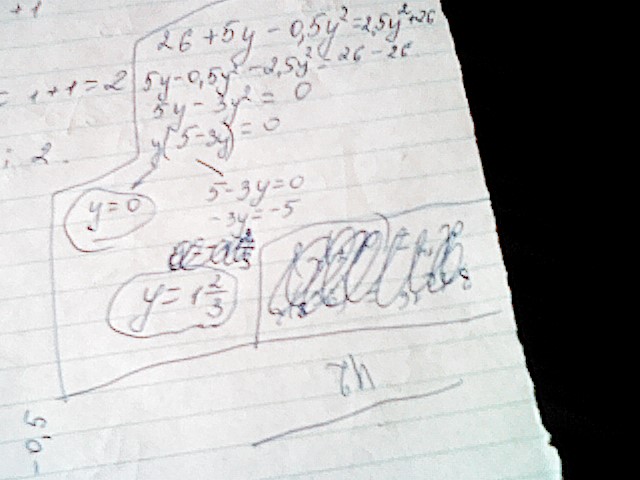 +1
26 + 5y - 0,5y² = 2,5y² + 26
= 1 + 1 = 2
5y - 0,5y² - 2,5y² = 26 - 26
5y - 3y² = 0
y(5-3y) = 0
; 2.
y = 0
5 - 3y = 0
-3y = -5
y = 1 2/3
-0,5